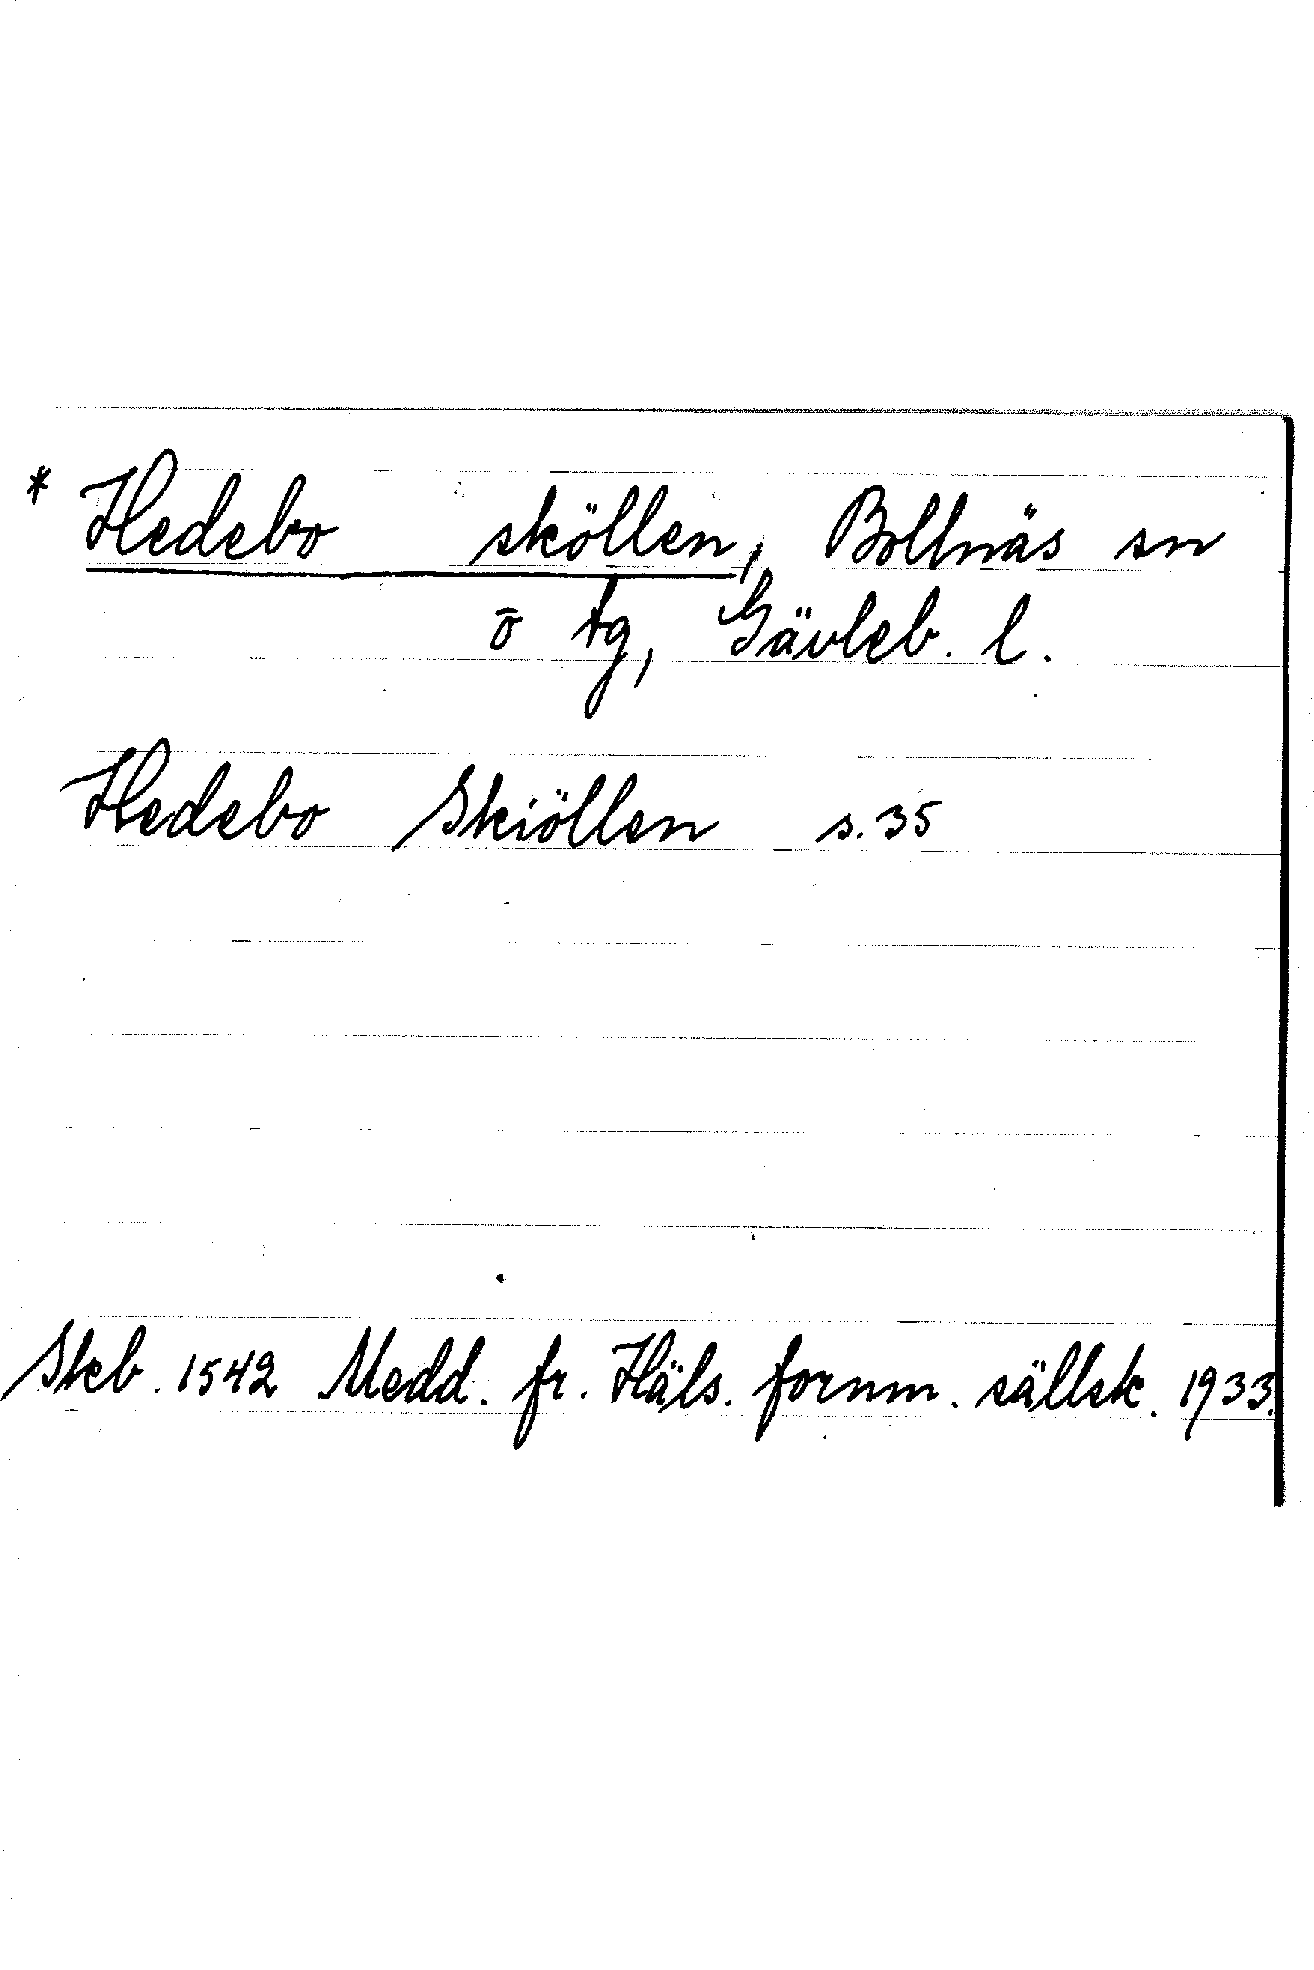 * Hedebo sköllen, Bollnäs sn
ö tg, Gävleb. l.
Hedebo Skiöllen s. 35
Skeb. 1542 Medd. fr. Häls. fornm. sällsk. 1933.